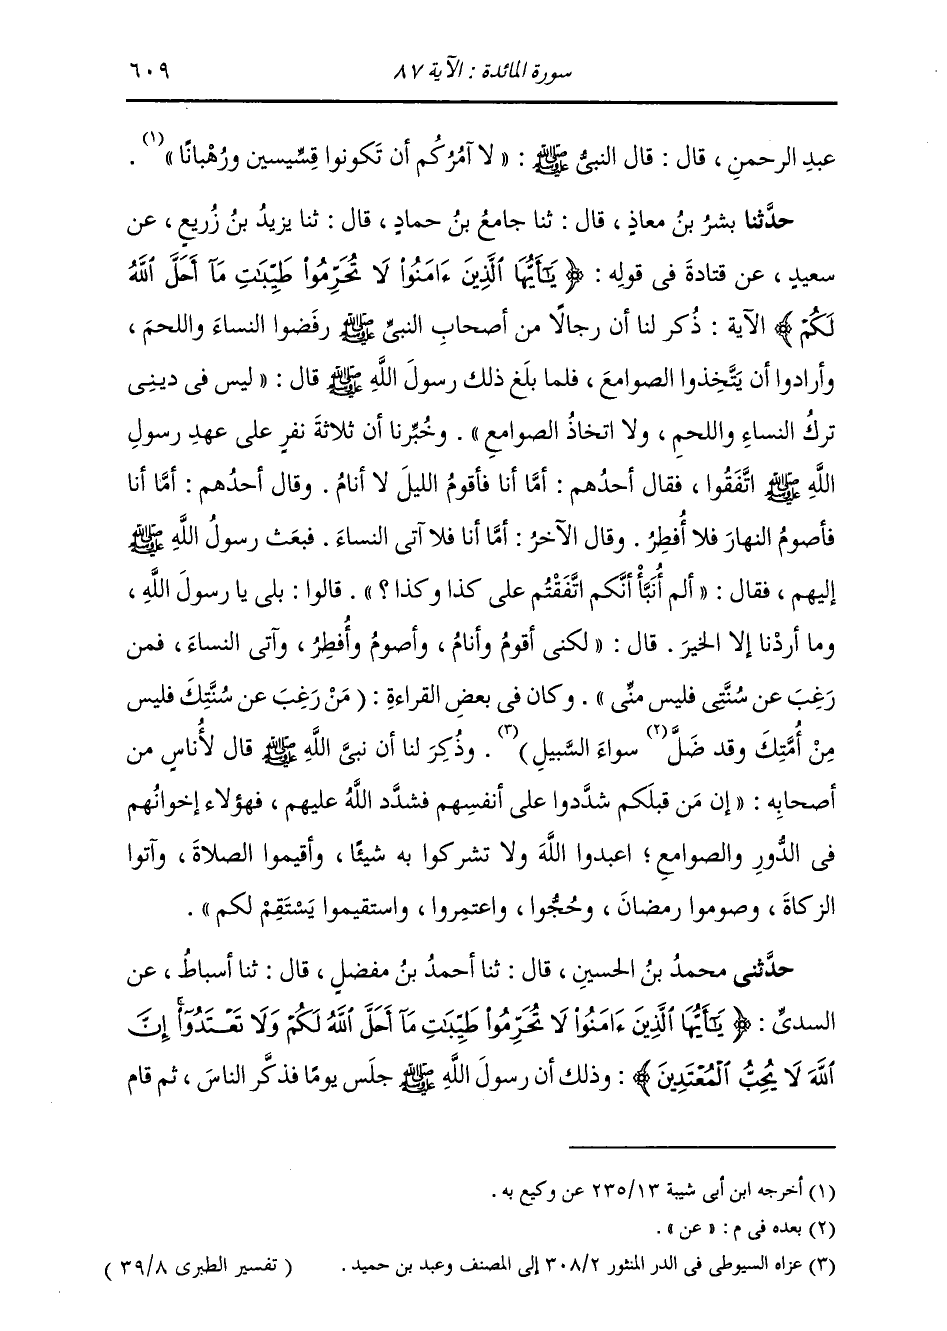 سورة المائدة : الآية ٨٧ ٦٠٩
عبدِ الرحمنِ ، قال : قال النبىُّ ﷺ : « لا آمُرُكُم أن تَكونوا قِسِّيسين ورُهْبانًا »(١) .
حدَّثنا بشرُ بنُ معاذٍ ، قال : ثنا جامعُ بنُ حمادٍ ، قال : ثنا يزيدُ بنُ زُريعٍ ، عن
سعيدٍ ، عن قتادةَ فى قولِه : ﴿ يَٰٓأَيُّهَا ٱلَّذِينَ ءَامَنُوا۟ لَا تُحَرِّمُوا۟ طَيِّبَٰتِ مَآ أَحَلَّ ٱللَّهُ
لَكُمْ ﴾ الآية : ذُكر لنا أن رجالًا من أصحابِ النبىِّ ﷺ رفَضوا النساءَ واللحمَ ،
وأرادوا أن يَتَّخِذوا الصوامعَ ، فلما بلَغ ذلك رسولَ اللَّهِ ﷺ قال : « ليس فى دينِى
تركُ النساءِ واللحمِ ، ولا اتخاذُ الصوامعِ » . وخُبِّرنا أن ثلاثةَ نفرٍ على عهدِ رسولِ
اللَّهِ ﷺ اتَّفَقُوا ، فقال أحدُهم : أمَّا أنا فأقومُ الليلَ لا أنامُ . وقال أحدُهم : أمَّا أنا
فأصومُ النهارَ فلا أُفطِرُ . وقال الآخرُ : أمَّا أنا فلا آتى النساءَ . فبعَث رسولُ اللَّهِ ﷺ
إليهم ، فقال : « ألم أُنَبَّأْ أنَّكم اتَّفَقْتُم على كذا وكذا ؟ » . قالوا : بلى يا رسولَ اللَّهِ ،
وما أردْنا إلا الخيرَ . قال : « لكنى أقومُ وأنامُ ، وأصومُ وأُفطِرُ ، وآتى النساءَ ، فمن
رَغِبَ عن سُنَّتِى فليس منِّى » . وكان فى بعضِ القراءةِ : ( مَنْ رَغِبَ عن سُنَّتِكَ فليس
مِنْ أُمَّتِكَ وقد ضَلَّ(٢) سواءَ السَّبيلِ )(٣) . وذُكِرَ لنا أن نبىَّ اللَّهِ ﷺ قال لأُناسٍ من
أصحابِه : « إن مَن قبلَكم شدَّدوا على أنفسِهم فشدَّد اللَّهُ عليهم ، فهؤلاء إخوانُهم
فى الدُّورِ والصوامعِ ؛ اعبدوا اللَّهَ ولا تشركوا به شيئًا ، وأقيموا الصلاةَ ، وآتوا
الزكاةَ ، وصوموا رمضانَ ، وحُجُّوا ، واعتمِروا ، واستقيموا يَسْتَقِمْ لكم » .
حدَّثنى محمدُ بنُ الحسينِ ، قال : ثنا أحمدُ بنُ مفضلٍ ، قال : ثنا أسباطُ ، عن
السدىِّ : ﴿ يَٰٓأَيُّهَا ٱلَّذِينَ ءَامَنُوا۟ لَا تُحَرِّمُوا۟ طَيِّبَٰتِ مَآ أَحَلَّ ٱللَّهُ لَكُمْ وَلَا تَعْتَدُوٓا۟ۚ إِنَّ
ٱللَّهَ لَا يُحِبُّ ٱلْمُعْتَدِينَ ﴾ : وذلك أن رسولَ اللَّهِ ﷺ جلَس يومًا فذكَّر الناسَ ، ثم قام
(١) أخرجه ابن أبى شيبة ٢٣٥/١٣ عن وكيع به .
(٢) بعده فى م : « عن » .
(٣) عزاه السيوطى فى الدر المنثور ٣٠٨/٢ إلى المصنف وعبد بن حميد . ( تفسير الطبرى ٣٩/٨ )